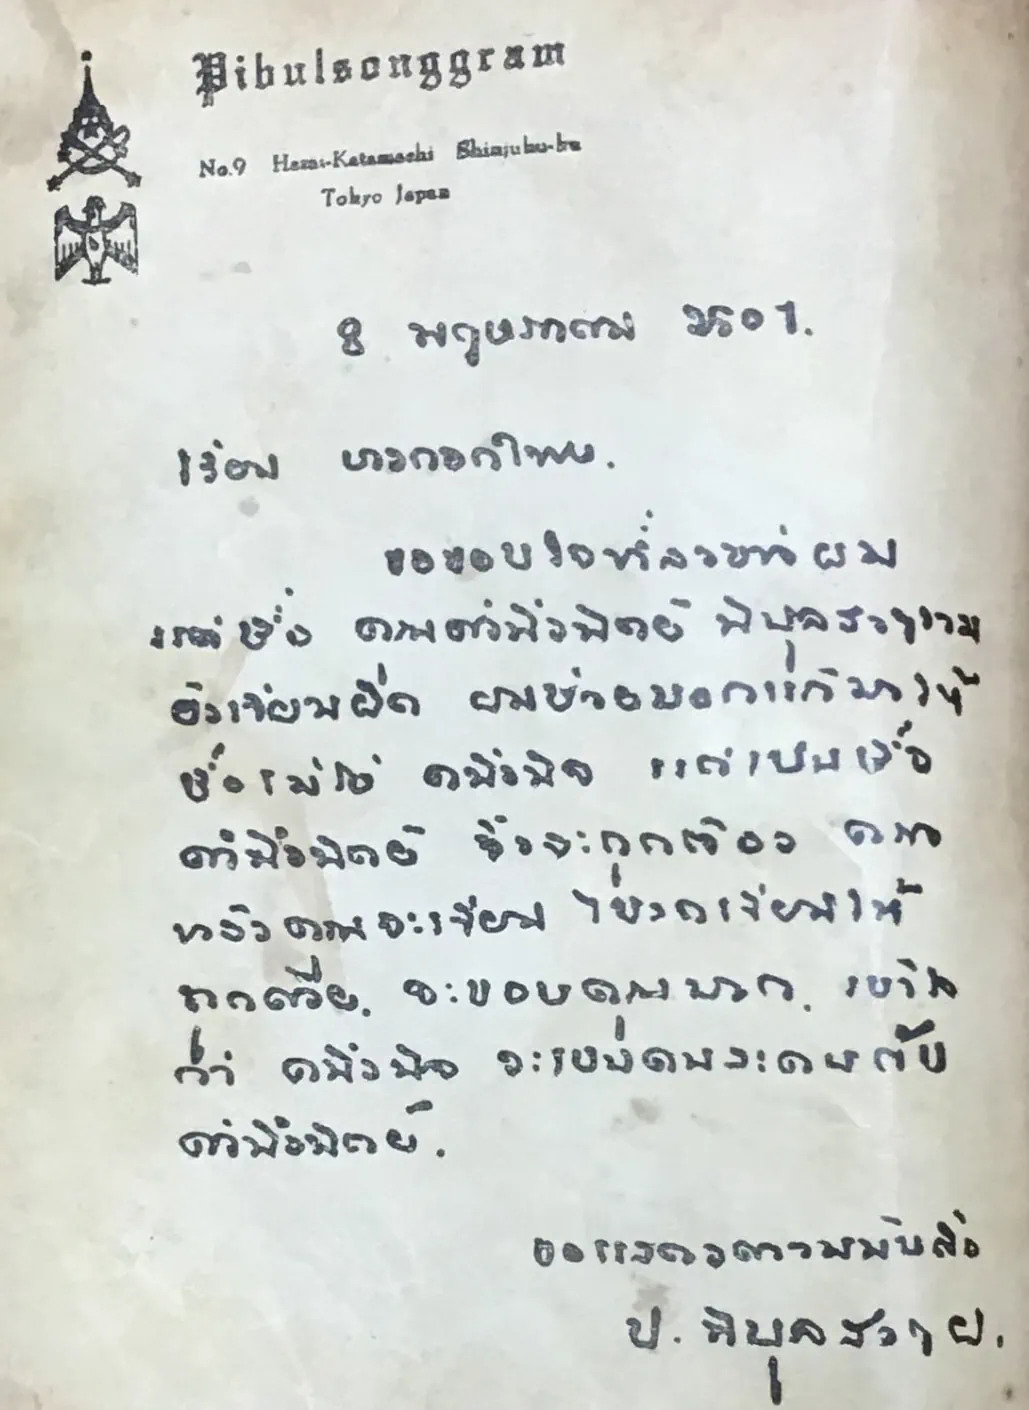 Pibulsonggram
No.9 Harai-Katamachi Shinjuku-ku
Tokyo Japan
8 พฤษภาคม ๒๕๐1.
เรียน บางกอกไทม.
ขอขอบใจที่ลงบทผม
แต่ชื่อ คุณคำนึงนิตย์ พิบูลสงคราม
ยังเขียนผิด ผมช่วยบอกแก้มาให้
ชื่อไม่ใช่ คนึงนิจ แต่เป็นชื่อ
คำนึงนิตย์ จึงจะถูกต้อง คราว
หลังคุณจะเขียน โปรดเขียนให้
ถูกด้วย. จะขอบคุณมาก.
ว่า คนึงนิจ จะเป็นคนละคนกับ
คำนึงนิตย์.
ขอแสดงความนับถือ
ป. พิบูลสงคราม.